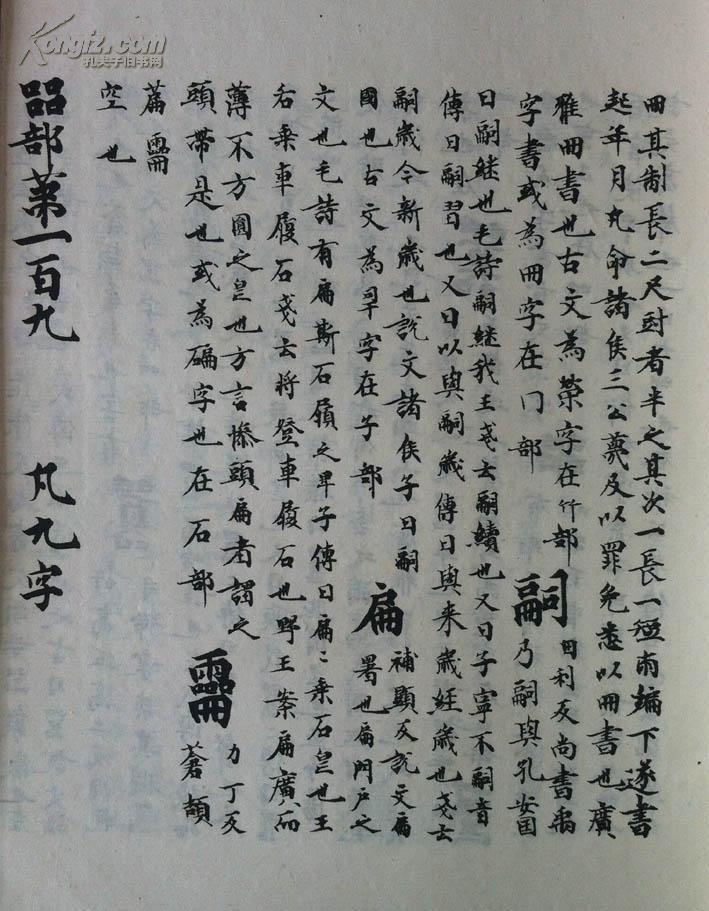 冊其制長二尺對者半之其次一長一短兩編下遂書
起年月凡命諸侯三公薨及以罪免悉以冊書也廣
雅冊書也古文為䇲字在竹部
字書或為冊字在冂部
嗣 囙利反尚書禹
乃嗣興孔安国
曰嗣継也毛詩嗣継我王戔云嗣續也又曰子寧不嗣音
傳曰嗣習也又曰以興嗣歲傳曰興来歲経歲也戔云
嗣歲今新歲也說文諸侯子曰嗣
國也古文為孠字在子部
扁 補顯反說文扁
署也扁門戶之
文也毛詩有扁斯石履之卑子傳曰扁〻乗石皃也王
右乗車履石戔云将登車履石也野王案扁廣而
薄不方圓之皃也方言幓頭扁者謂之
頭帶是也或為碥字也在石部
力丁反
蒼頡
篇
空也
㗊部苐一百九 凡九字
孔夫子旧书网
Kongfz.com